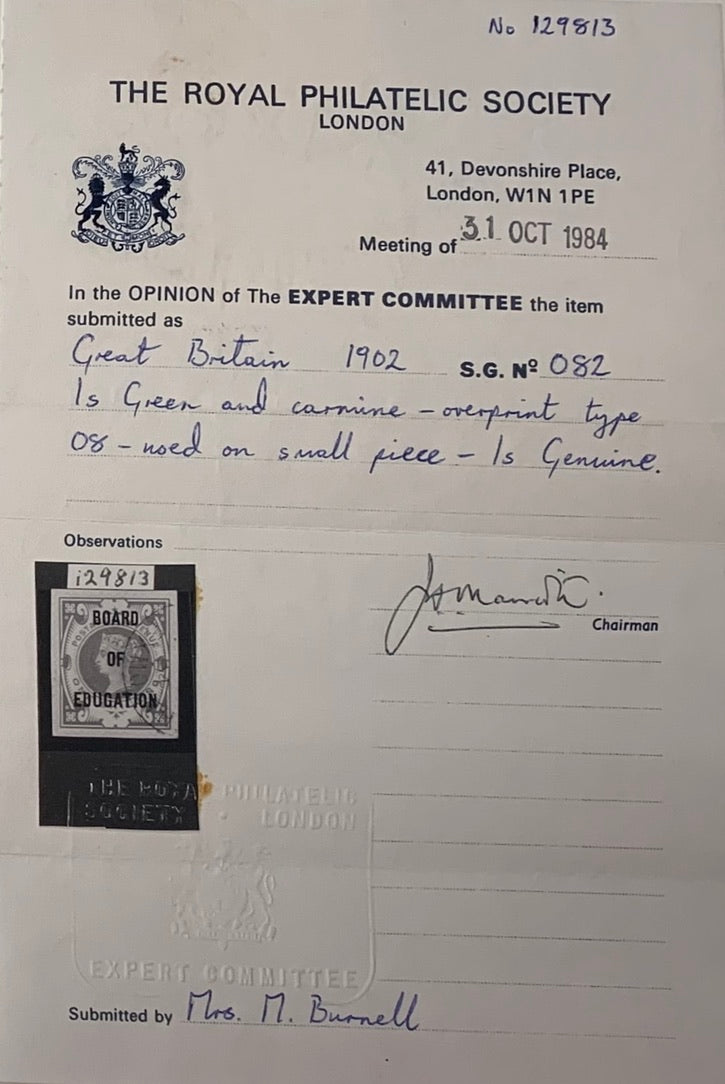 No 129813
THE ROYAL PHILATELIC SOCIETY
LONDON
41, Devonshire Place,
London, W1N 1PE
Meeting of 31 OCT 1984
In the OPINION of The EXPERT COMMITTEE the item
submitted as
Great Britain 1902 S.G. Nº O82
1s Green and carmine - overprint type
O8 - used on small piece - Is Genuine.
Observations
129813
BOARD
OF
EDUCATION
Chairman
THE ROYAL PHILATELIC
SOCIETY • LONDON
EXPERT COMMITTEE
Submitted by Mrs. M. Burnell